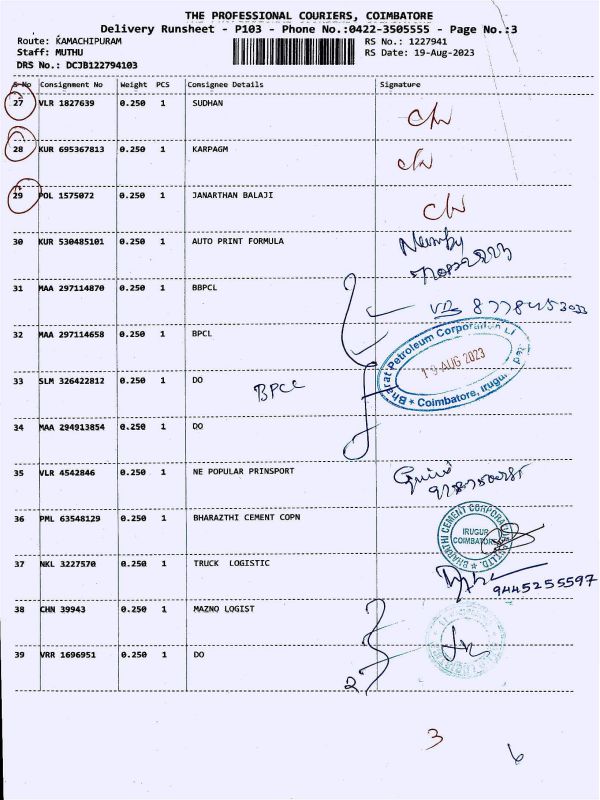 THE PROFESSIONAL COURIERS, COIMBATORE
Delivery Runsheet - P103 - Phone No.:0422-3505555 - Page No.:3
Route: KAMACHIPURAM RS No.: 1227941
Staff: MUTHU RS Date: 19-Aug-2023
DRS No.: DCJB122794103
S No Consignment No Weight PCS Consignee Details Signature
27 VLR 1827639 0.250 1 SUDHAN
28 KUR 695367813 0.250 1 KARPAGM
29 POL 1575072 0.250 1 JANARTHAN BALAJI
30 KUR 530485101 0.250 1 AUTO PRINT FORMULA
31 MAA 297114870 0.250 1 BBPCL
32 MAA 297114658 0.250 1 BPCL
Bharat Petroleum Corporation
19 AUG 2023
Coimbatore, Irugur
33 SLM 326422812 0.250 1 DO
BPCL
34 MAA 294913854 0.250 1 DO
35 VLR 4542846 0.250 1 NE POPULAR PRINSPORT
36 PML 63548129 0.250 1 BHARAZTHI CEMENT COPN
BHARATHI CEMENT CORPORATION
IRUGUR
COIMBATORE
37 NKL 3227570 0.250 1 TRUCK LOGISTIC
9445255597
38 CHN 39943 0.250 1 MAZNO LOGIST
39 VRR 1696951 0.250 1 DO
2
3
6